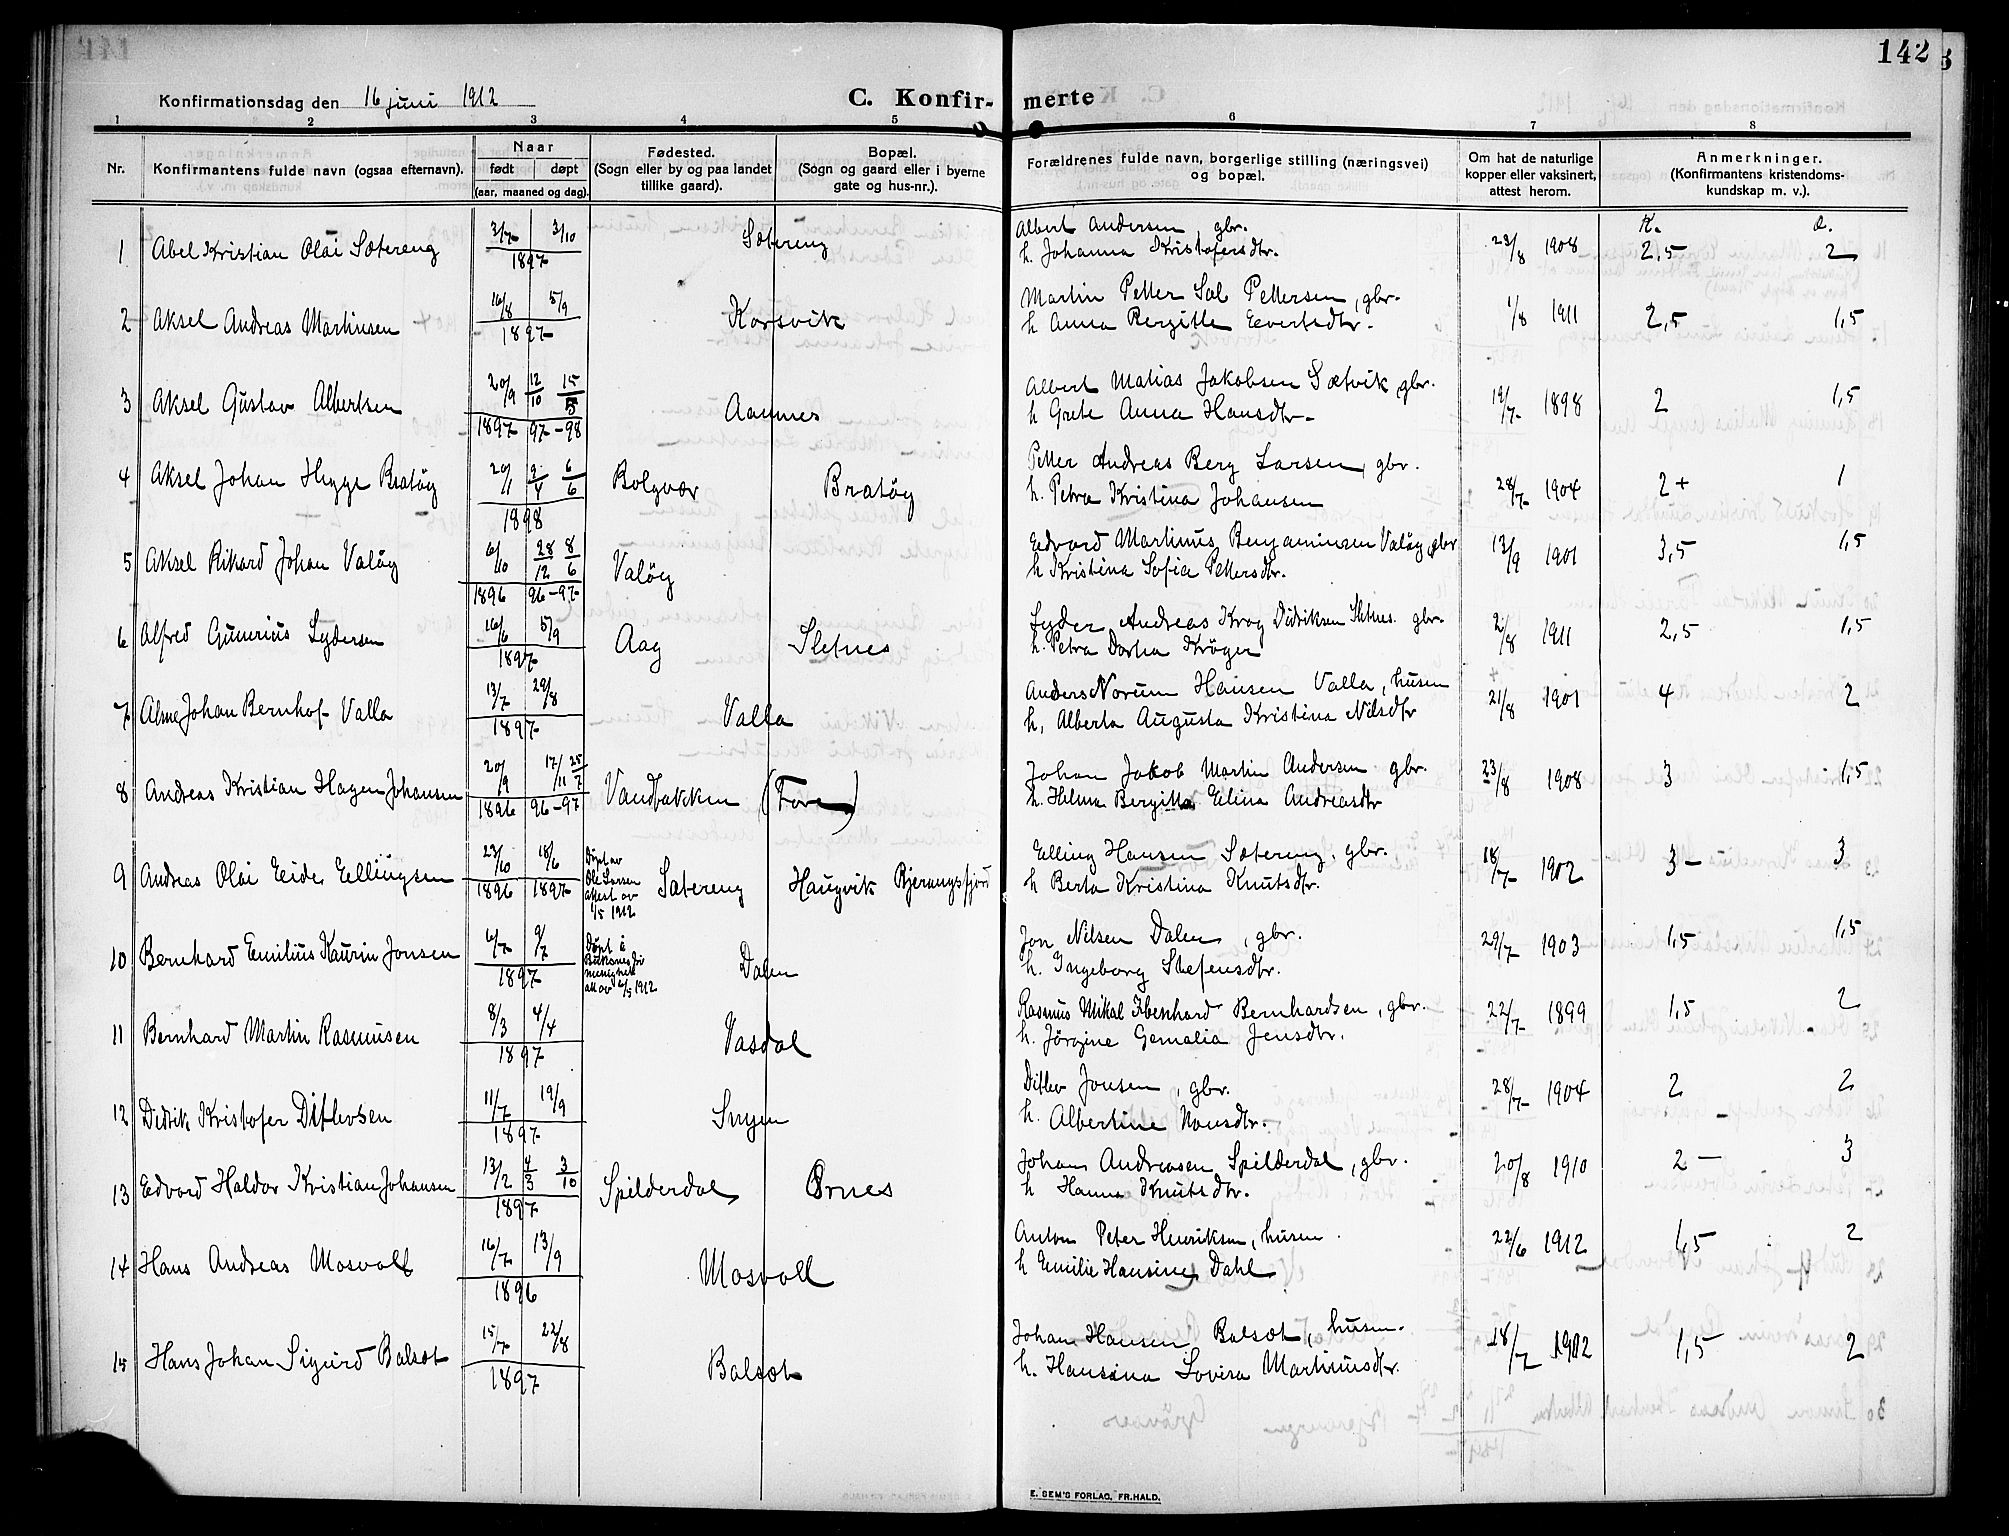 142
Konfirmationsdag den 16 juni 1912
C. Konfir- merte
1 2 3 4 5 6 7 8
Nr. Konfirmantens fulde navn (ogsaa efternavn). Naar født døpt (aar, maaned og dag). Fødested. (Sogn eller by og paa landet tillike gaard). Bopæl. (Sogn og gaard eller i byerne gate og hus-nr.). Forældrenes fulde navn, borgerlige stilling (næringsvei) og bopæl. Om hat de naturlige kopper eller vaksinert, attest herom. Anmerkninger. (Konfirmantens kristendoms- kundskap m. v.).
K.
1 Abel Kristian Olai Sætereng 3/7 3/10 1897 Sætereng Albert Andersen, gbr. 23/8 1908 2,5 2
h. Johanna Kristofersdtr.
2 Aksel Andreas Martinsen 16/8 5/9 1897 Korsvik Martin Petter Sal Pettersen, gbr. 1/8 1911 2,5 1,5
h Anna Bergitte Evertsdtr.
3 Aksel Gustav Albertsen 20/9 12/10 15/5 1897 97-98 Aamnes Albert Matias Jakobsen Sætvik gbr. 19/7 1898 2 1,5
h Grete Anna Hansdtr.
4 Aksel Johan Hegge Bratøy 20/1 2/4 6/6 1898 Bolgvær Bratøy Petter Andreas Berg Larsen, gbr. 28/7 1904 2+ 1
h. Petra Kristina Johansen
5 Aksel Rikard Johan Valøy 6/10 28/12 8/6 1896 96-97 Valøy Edvard Martinus Benjaminsen Valøy, gbr 13/9 1901 3,5 1,5
h Kristina Sofia Pettersdtr.
6 Alfred Gunerius Lydersen 16/6 5/9 1897 Aag Sletnes Lyder Andreas Krog Didriksen Sletnes. gbr. 2/8 1911 2,5 1,5
h. Petra Dortea Krøger
7 Johan Bernhof Valla 13/7 29/8 1897 Valla Anders Norum Hansen Valla, husm 21/8 1901 4 2
h, Alberta Augusta Kristina Nilsdtr
8 Andreas Kristian Hagen Johansen 20/9 17/11 25/7 1896 96-97 Vandbakken (Fore) Johan Jakob Martin Andersen gbr. 23/8 1908 3 1,5
h. Helma Bergitta Elina Andreasdtr
9 Andreas Olai Eide Ellingsen 23/10 18/6 1896 1897 Døpt av Ole Larsen attest av 1/5 1912 Sætereng Haugvik Bjerangsfjord Elling Hansen Sætereng, gbr. 18/7 1902 3- 3
h Berta Kristina Knutsdtr.
10 Bernhard Emilius Kaurin Jonsen 6/7 9/7 1897 Døpt i menighet att av 6/5 1912 Dalen Jon Nilsen Dalen, gbr. 29/7 1903 1,5 1,5
h. Ingeborg Stefensdtr.
11 Bernhard Martin Rasmussen 8/3 4/4 1897 Vasdal Rasmus Mikal Ibenhard Bernhardsen, gbr. 22/7 1899 1,5 2
h. Jørgine Gemalia Jensdtr.
12 Didrik Kristofer Ditlevsen 11/7 19/9 1897 Ditlev Jonsen, gbr. 28/7 1904 2 2
h. Albertine Monsdtr.
13 Edvard Haldor Kristian Johansen 13/2 4/3 3/10 1897 Spilderdal Ørnes Johan Andreasen Spilderdal, gbr. 20/8 1910 2- 3
h Hanna Knutsdtr.
14 Hans Andreas Mosvoll 16/7 13/9 1896 Mosvoll Anton Peter Henriksen, husm. 22/6 1912 1,5 2
h Emilie Hansine Dahl
15 Hans Johan Sigurd Balsæt 15/7 22/8 1897 Balsæt Johan Hansen Balsæt, husm. 18/7 1912 1,5 2
h. Hansina Lovisa Martinusdtr.
E. SEM'S FORLAG, FR.HALD.